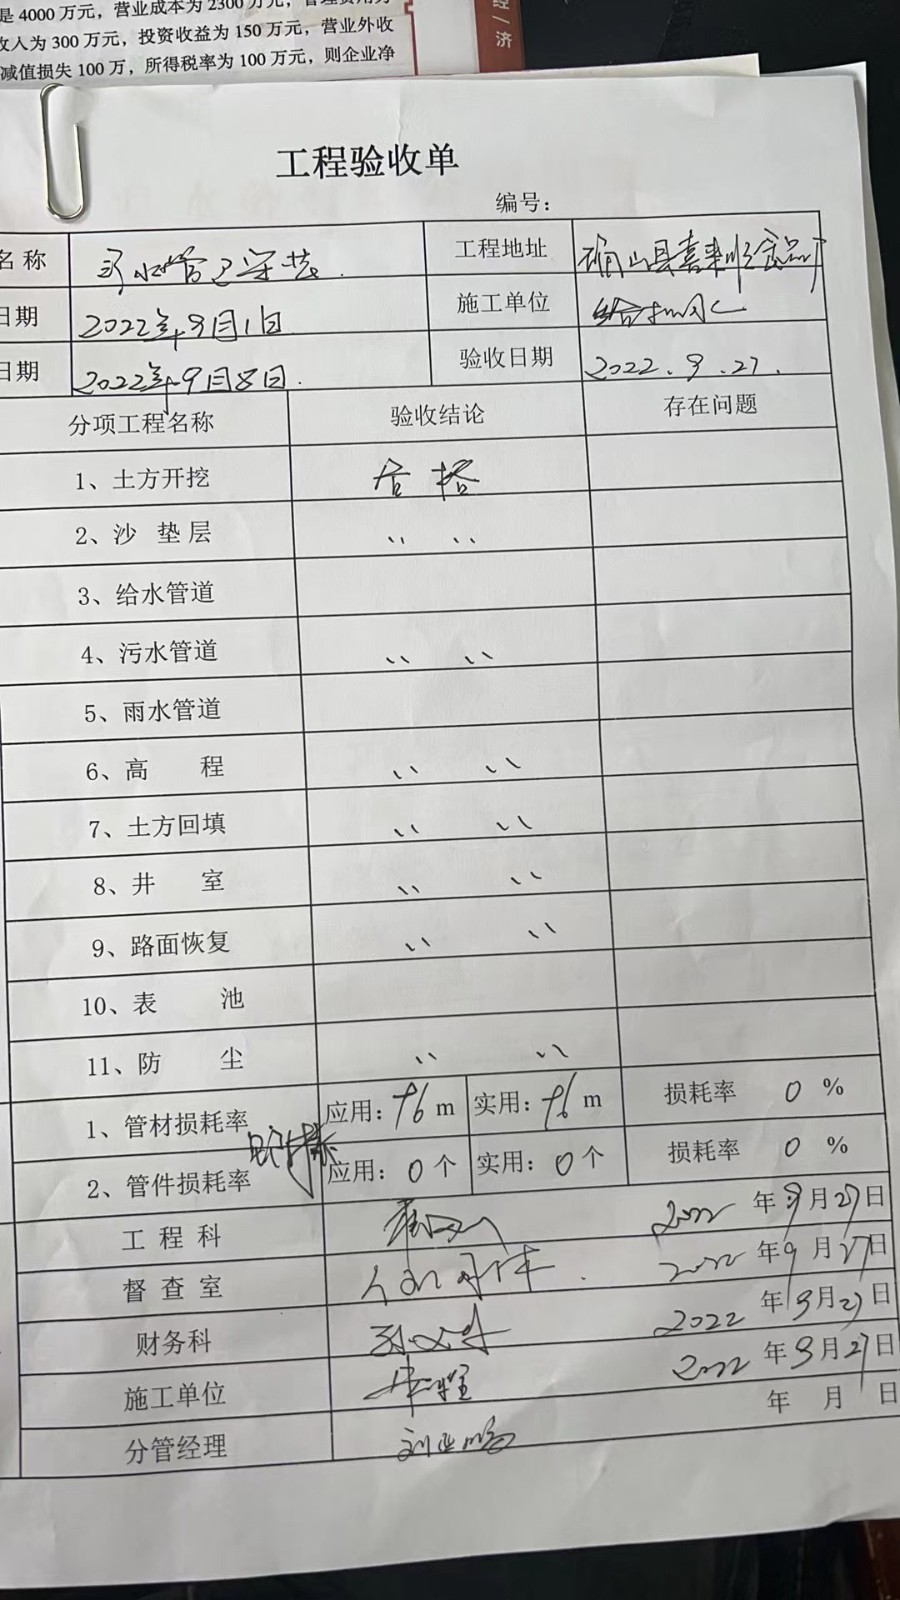 是 4000 万元，营业成本为 2300 万元，管理费用为
收入为 300 万元，投资收益为 150 万元，营业外收
减值损失 100 万，所得税率为 100 万元，则企业净
经
济
工程验收单
编号：
名 称 污水管已安装 工程地址 确山县
日期 2022年9月1日 施工单位
日期 2022年9月8日 验收日期 2022.9.27.
分项工程名称 验收结论 存在问题
1、土方开挖 合格
2、沙 垫 层 〃 〃
3、给水管道
4、污水管道 〃 〃
5、雨水管道
6、高 程 〃 〃
7、土方回填 〃 〃
8、井 室 〃 〃
9、路面恢复 〃 〃
10、表 池
11、防 尘 〃 〃
1、管材损耗率 应用： m 实用： m 损耗率 0 %
2、管件损耗率 应用：0 个 实用：0 个 损耗率 0 %
工 程 科 2022 年 9 月 27 日
督 查 室 2022 年 9 月 27 日
财务科 2022 年 9 月 27 日
施工单位 2022 年 9 月 27 日
分管经理 年 月 日